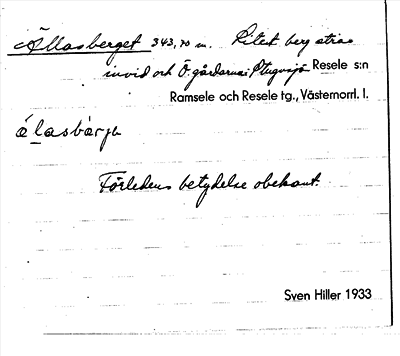 Ällasberget 343,70 m. Litet berg strax
invid och Ö. gårdarna i Stugusjö Resele s:n
Ramsele och Resele tg., Västernorrl. l.
Förledens betydelse obekant.
Sven Hiller 1933